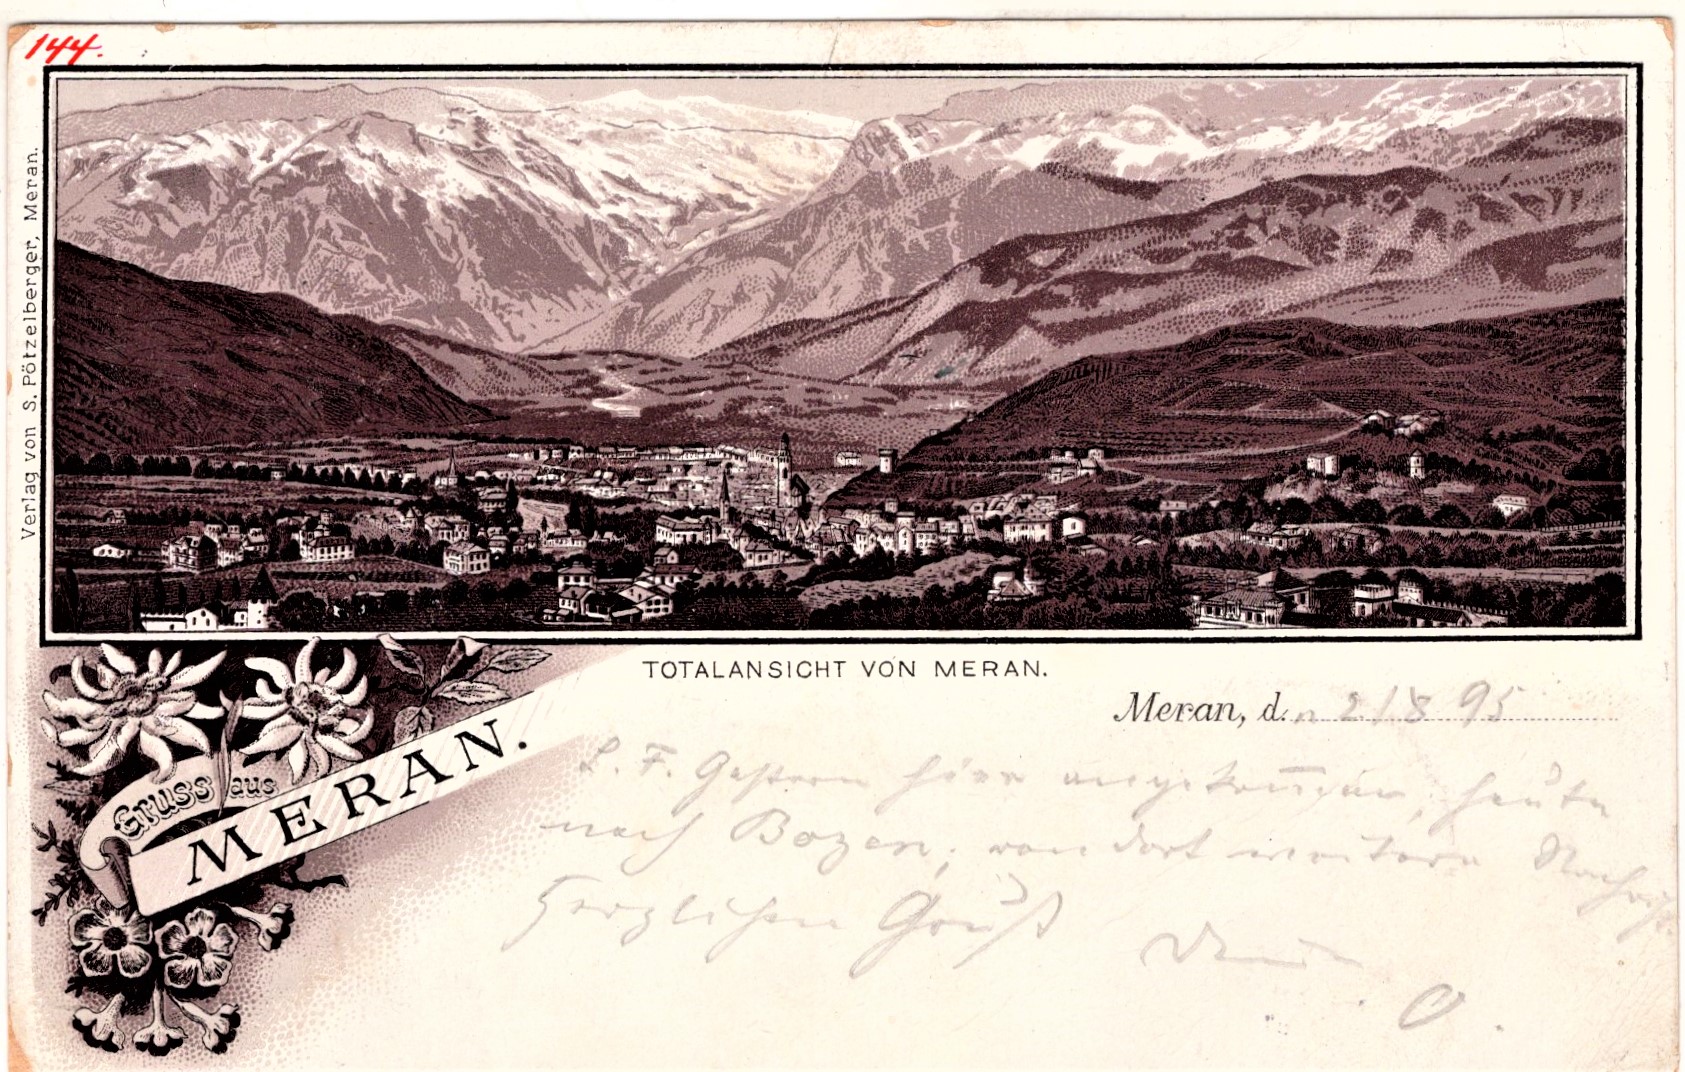 144.
Verlag von S. Pötzelberger, Meran.
TOTALANSICHT VON MERAN.
Meran, d. n 2/8 95
Gruss aus
MERAN.
L. F. Gestern hier angekommen, heute
nach Bozen, von dort weitere
Herzlichen Gruß
Dein
O.